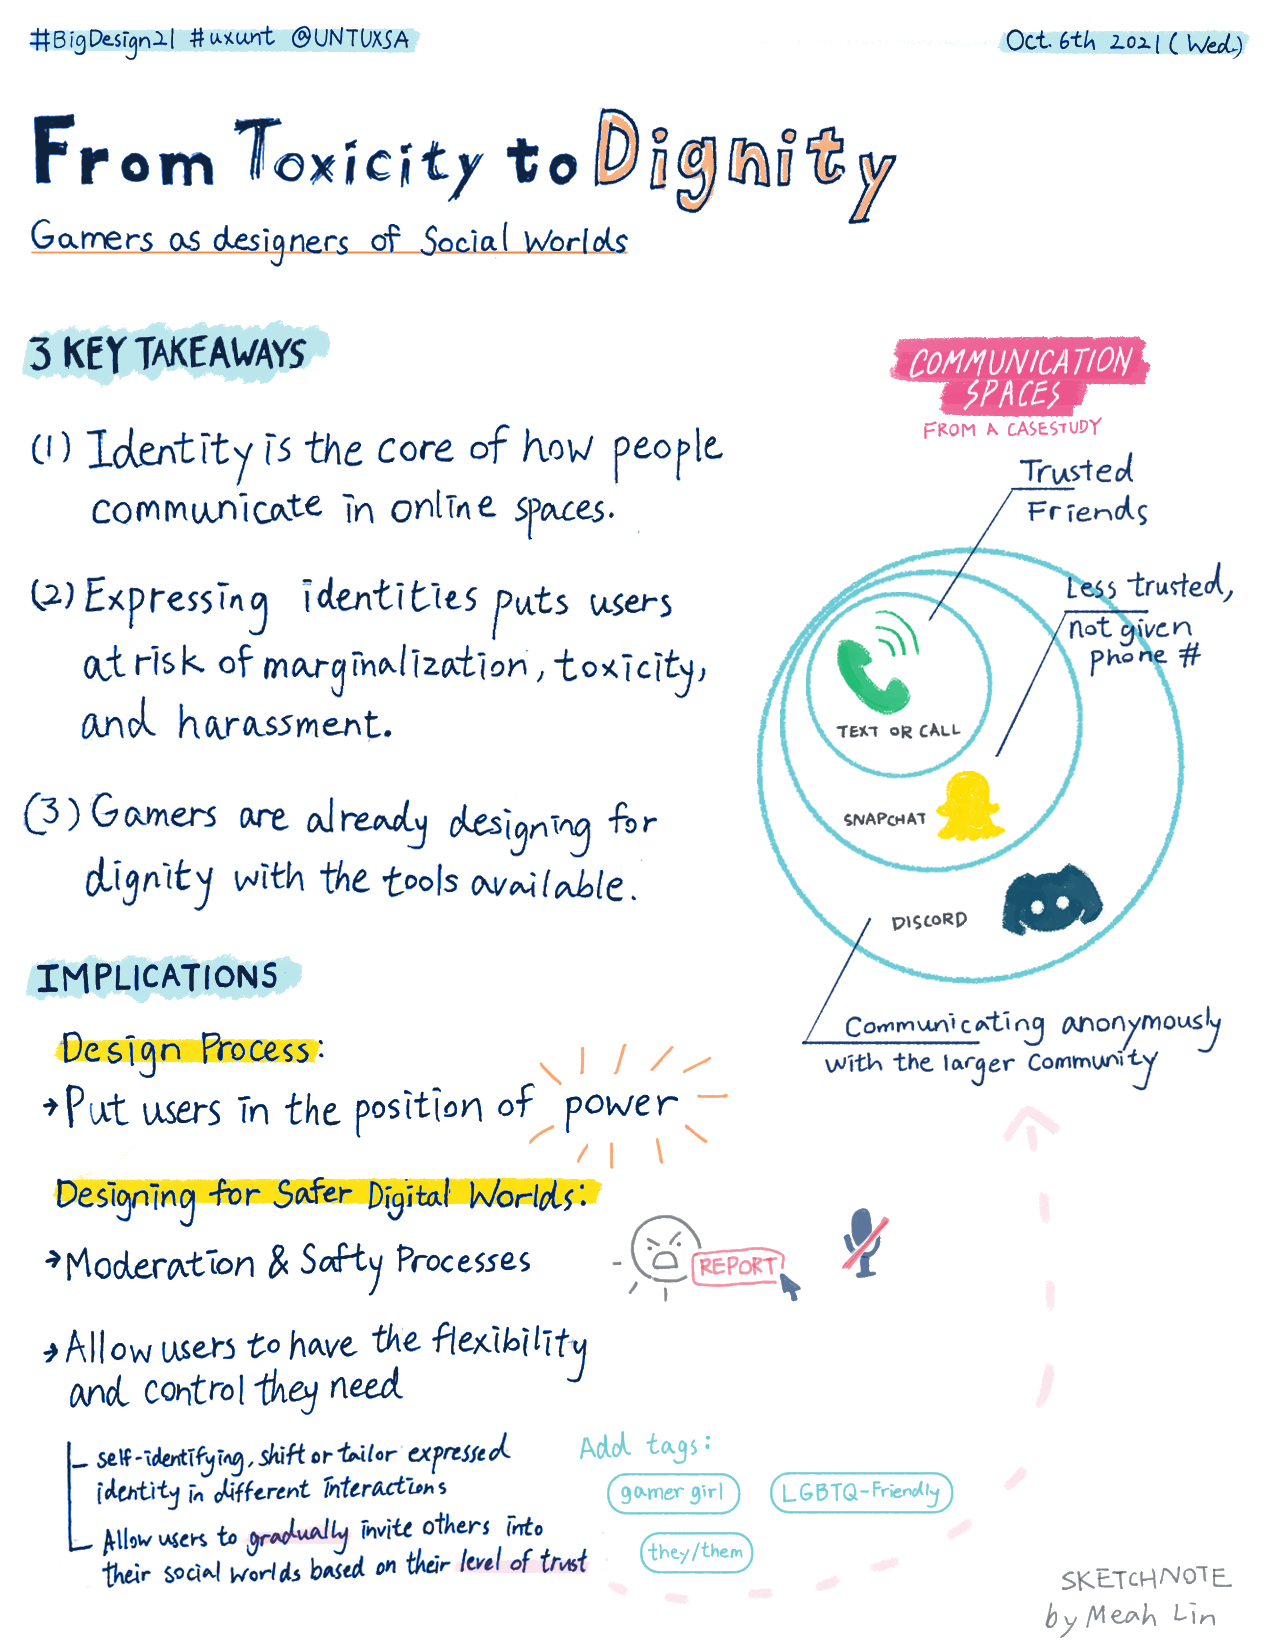 #BigDesign21 #uxunt @UNTUXSA
Oct. 6th 2021 (Wed.)
From Toxicity to Dignity
Gamers as designers of Social Worlds
3 KEY TAKEAWAYS
(1) Identity is the core of how people
communicate in online spaces.
(2) Expressing identities puts users
at risk of marginalization, toxicity,
and harassment.
(3) Gamers are already designing for
dignity with the tools available.
COMMUNICATION
SPACES
FROM A CASESTUDY
Trusted
Friends
Less trusted,
not given
phone #
TEXT OR CALL
SNAPCHAT
DISCORD
Communicating anonymously
with the larger community
IMPLICATIONS
Design Process:
→ Put users in the position of power
Designing for Safer Digital Worlds:
→ Moderation & Safty Processes
REPORT
→ Allow users to have the flexibility
and control they need
self-identifying, shift or tailor expressed
identity in different interactions
Allow users to gradually invite others into
their social worlds based on their level of trust
Add tags:
gamer girl
LGBTQ-Friendly
they/them
SKETCHNOTE
by Meah Lin